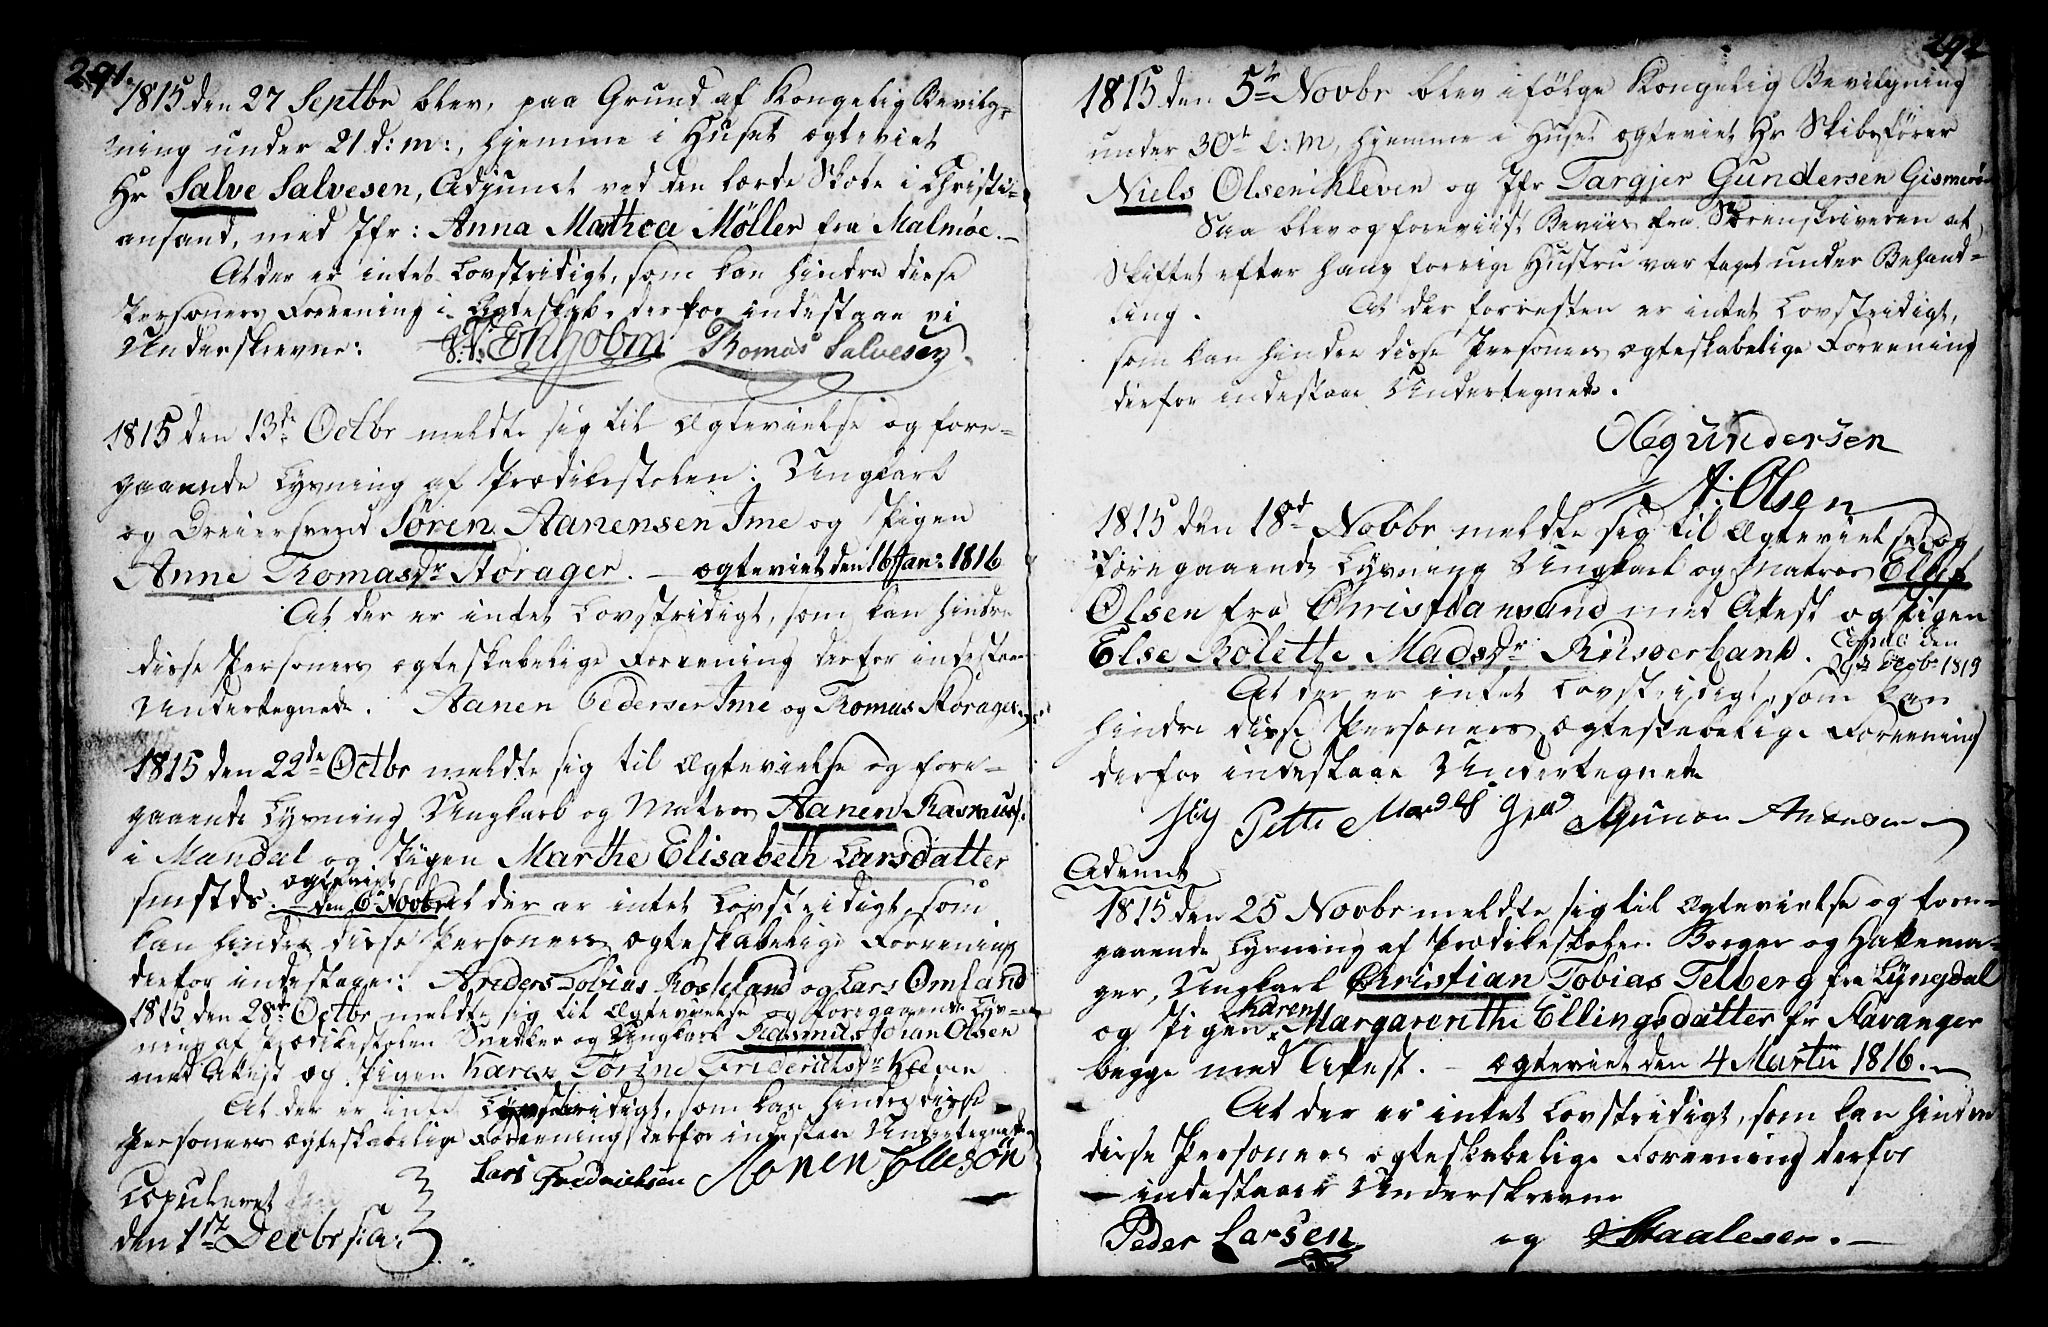 291.
1815 den 27 Septbr blev, paa Grund af Kongelig Bevilg-
ning under 21 d: m:, hjemme i Huset ægteviet
Hr Salve Salvesen, Adjunct ved den lærde Skole i Christi-
ansand, med Jfr: Anna Mathea Møller fra Malmøe.
At der er intet Lovstridigt, som kan hindre disse
Personers Foreening i Ægteskab, derfor indestaae vi
Underskrevne: Thomas Salvesen
1815 den 13de Octbr meldte sig til Ægtevielse og fore-
gaaende Lysning af Prædikestolen: Ungkarl
og Dreiersvend Søren Aanensen Ime og Pigen
Anne Thomasdr Storager. — ægteviet den 16 Jan: 1816
At der er intet Lovstridigt, som kan hindre
disse Personers ægteskabelige Foreening derfor indestaae
Undertegnede. Aanen Pedersen Ime og Thomas Storager
1815 den 22de Octbr meldte sig til Ægtevielse og fore-
gaaende Lysning Ungkarl og Matros Aanen Rasmuss.
i Mandal og Pigen Marthe Elisabeth Larsdatter
smstds. ægteviet den 6 Novbr At der er intet Lovstridigt, som
kan hindre disse Personers ægteskabelige Foreening
derfor indestaaer: Anders Tobias Roseland og Lars Omland
1815 den 28de Octbr meldte sig til Ægtevielse og foregaaende Lys-
ning af Prædikestolen Snedker og Ungkarl Rasmus Johan Olsen
med Attest og Pigen Karen Torine Friderichsdr Kleven
At der er intet Lovstridigt, som kan hindre disse
Personers ægteskabelige Foreening derfor indestaae Undertegnede
Lars Fredrichsen
Copuleret
den 1ste Decbr s: a:
292
1815 den 5te Novbr blev ifølge Kongelig Bevilgning
under 30te f: m, hjemme i Huset ægteviet Hr Skibsfører
Niels Olsen Kleven og Jfr Targjer Gundersen Gismerøe
Saa blev og foreviist Beviis fra Sorenskriveren at
Skiftet efter hans forrige Hustru var taget under Behand-
ling. At der forresten er intet Lovstridigt,
som kan hindre disse Personers ægteskabelige Foreening
derfor indestaae Undertegnede.
Ole gundersen
A: Olsen
1815 den 18de Novbr meldte sig til Ægtevielse og
foregaaende Lysning Ungkarl og Matros Elef
Olsen fra Christiansand med Attest og Pigen
Else Bolette Madsdr Risøerbank.
At der er intet Lovstridigt, som kan
hindre disse Personers ægteskabelige Foreening
derfor indestaae Undertegnede
Advent
1815 den 25 Novbr meldte sig til Ægtevielse og fore-
gaaende Lysning af Prædikestolen Borger og Hatema-
ger, Ungkarl Christian Tobias Telberg fra Lyngdal
og Pigen Karen Margarenthe Ellingsdatter fr Stavanger
begge med Attest. — ægteviet den 4 Martii 1816. —
At der er intet Lovstridigt, som kan hindre
disse Personers ægteskabelige Foreening derfor
indestaaer Underskrevne
Peder Larsen og Staalesen. —